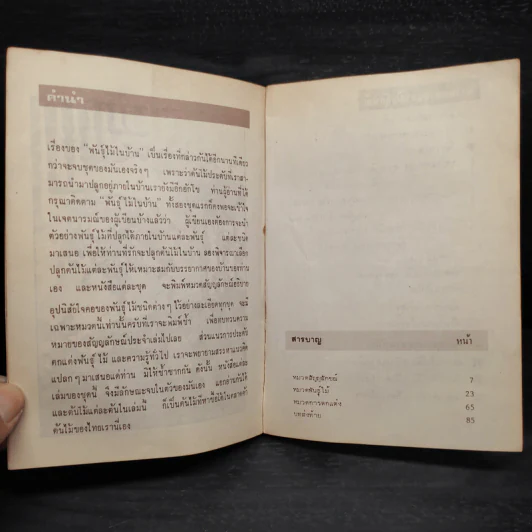 คำนำ
เรื่องของ "พันธุ์ไม้ในบ้าน" เป็นเรื่องที่กล่าวกันได้อีกนานทีเดียว
กว่าจะจบชุดของมันเองจริงๆ เพราะว่าต้นไม้ประดับที่เราสา-
มารถนำมาปลูกอยู่ภายในบ้านเรายังมีอีกอักโข ท่านผู้อ่านที่ได้
กรุณาติดตาม "พันธุ์ไม้ในบ้าน" ทั้งสองชุดแรกก็คงพอจะเข้าใจ
ในเจตนารมณ์ของผู้เขียนบ้างแล้วว่า ผู้เขียนเองต้องการจะนำ
ตัวอย่างพันธุ์ไม้ที่ปลูกได้ภายในบ้านแต่ละพันธุ์ แต่ละชนิด
มาเสนอ เพื่อให้ท่านที่รักจะปลูกต้นไม้ในบ้าน ลองพิจารณาเลือก
ปลูกต้นไม้แต่ละพันธุ์ให้เหมาะสมกับบรรยากาศของบ้านของท่าน
เอง และหนังสือแต่ละชุด จะพิมพ์หมวดสัญญลักษณ์อธิบาย
อุปนิสัยใจคอของพันธุ์ไม้ชนิดต่างๆ ไว้อย่างละเอียดทุกชุด จะมี
เฉพาะหมวดนี้เท่านั้นครับที่จะพิมพ์ซ้ำ เพื่อทบทวนความ
หมายของสัญญลักษณ์ประจำเล่มไปเลย ส่วนแนวการประดับ
ตกแต่งพันธุ์ไม้ และความรู้ทั่วไป เราจะพยายามสรรหาแนวคิด
แปลกๆ มาเสนอแด่ท่าน มิให้ซ้ำซากกัน ดังนั้น หนังสือแต่ละ
เล่มของชุดนี้ จึงมีลักษณะจบในตัวของมันเอง แยกอ่านกันได้
และต้นไม้แต่ละต้นในเล่มนี้ ก็เป็นต้นไม้ที่หาซื้อได้ในตลาดค้า
ต้นไม้ของไทยเรานี่เอง
สารบาญ หน้า
หมวดสัญลักษณ์ 7
หมวดพันธุ์ไม้ 23
หมวดการตกแต่ง 65
บทส่งท้าย 85